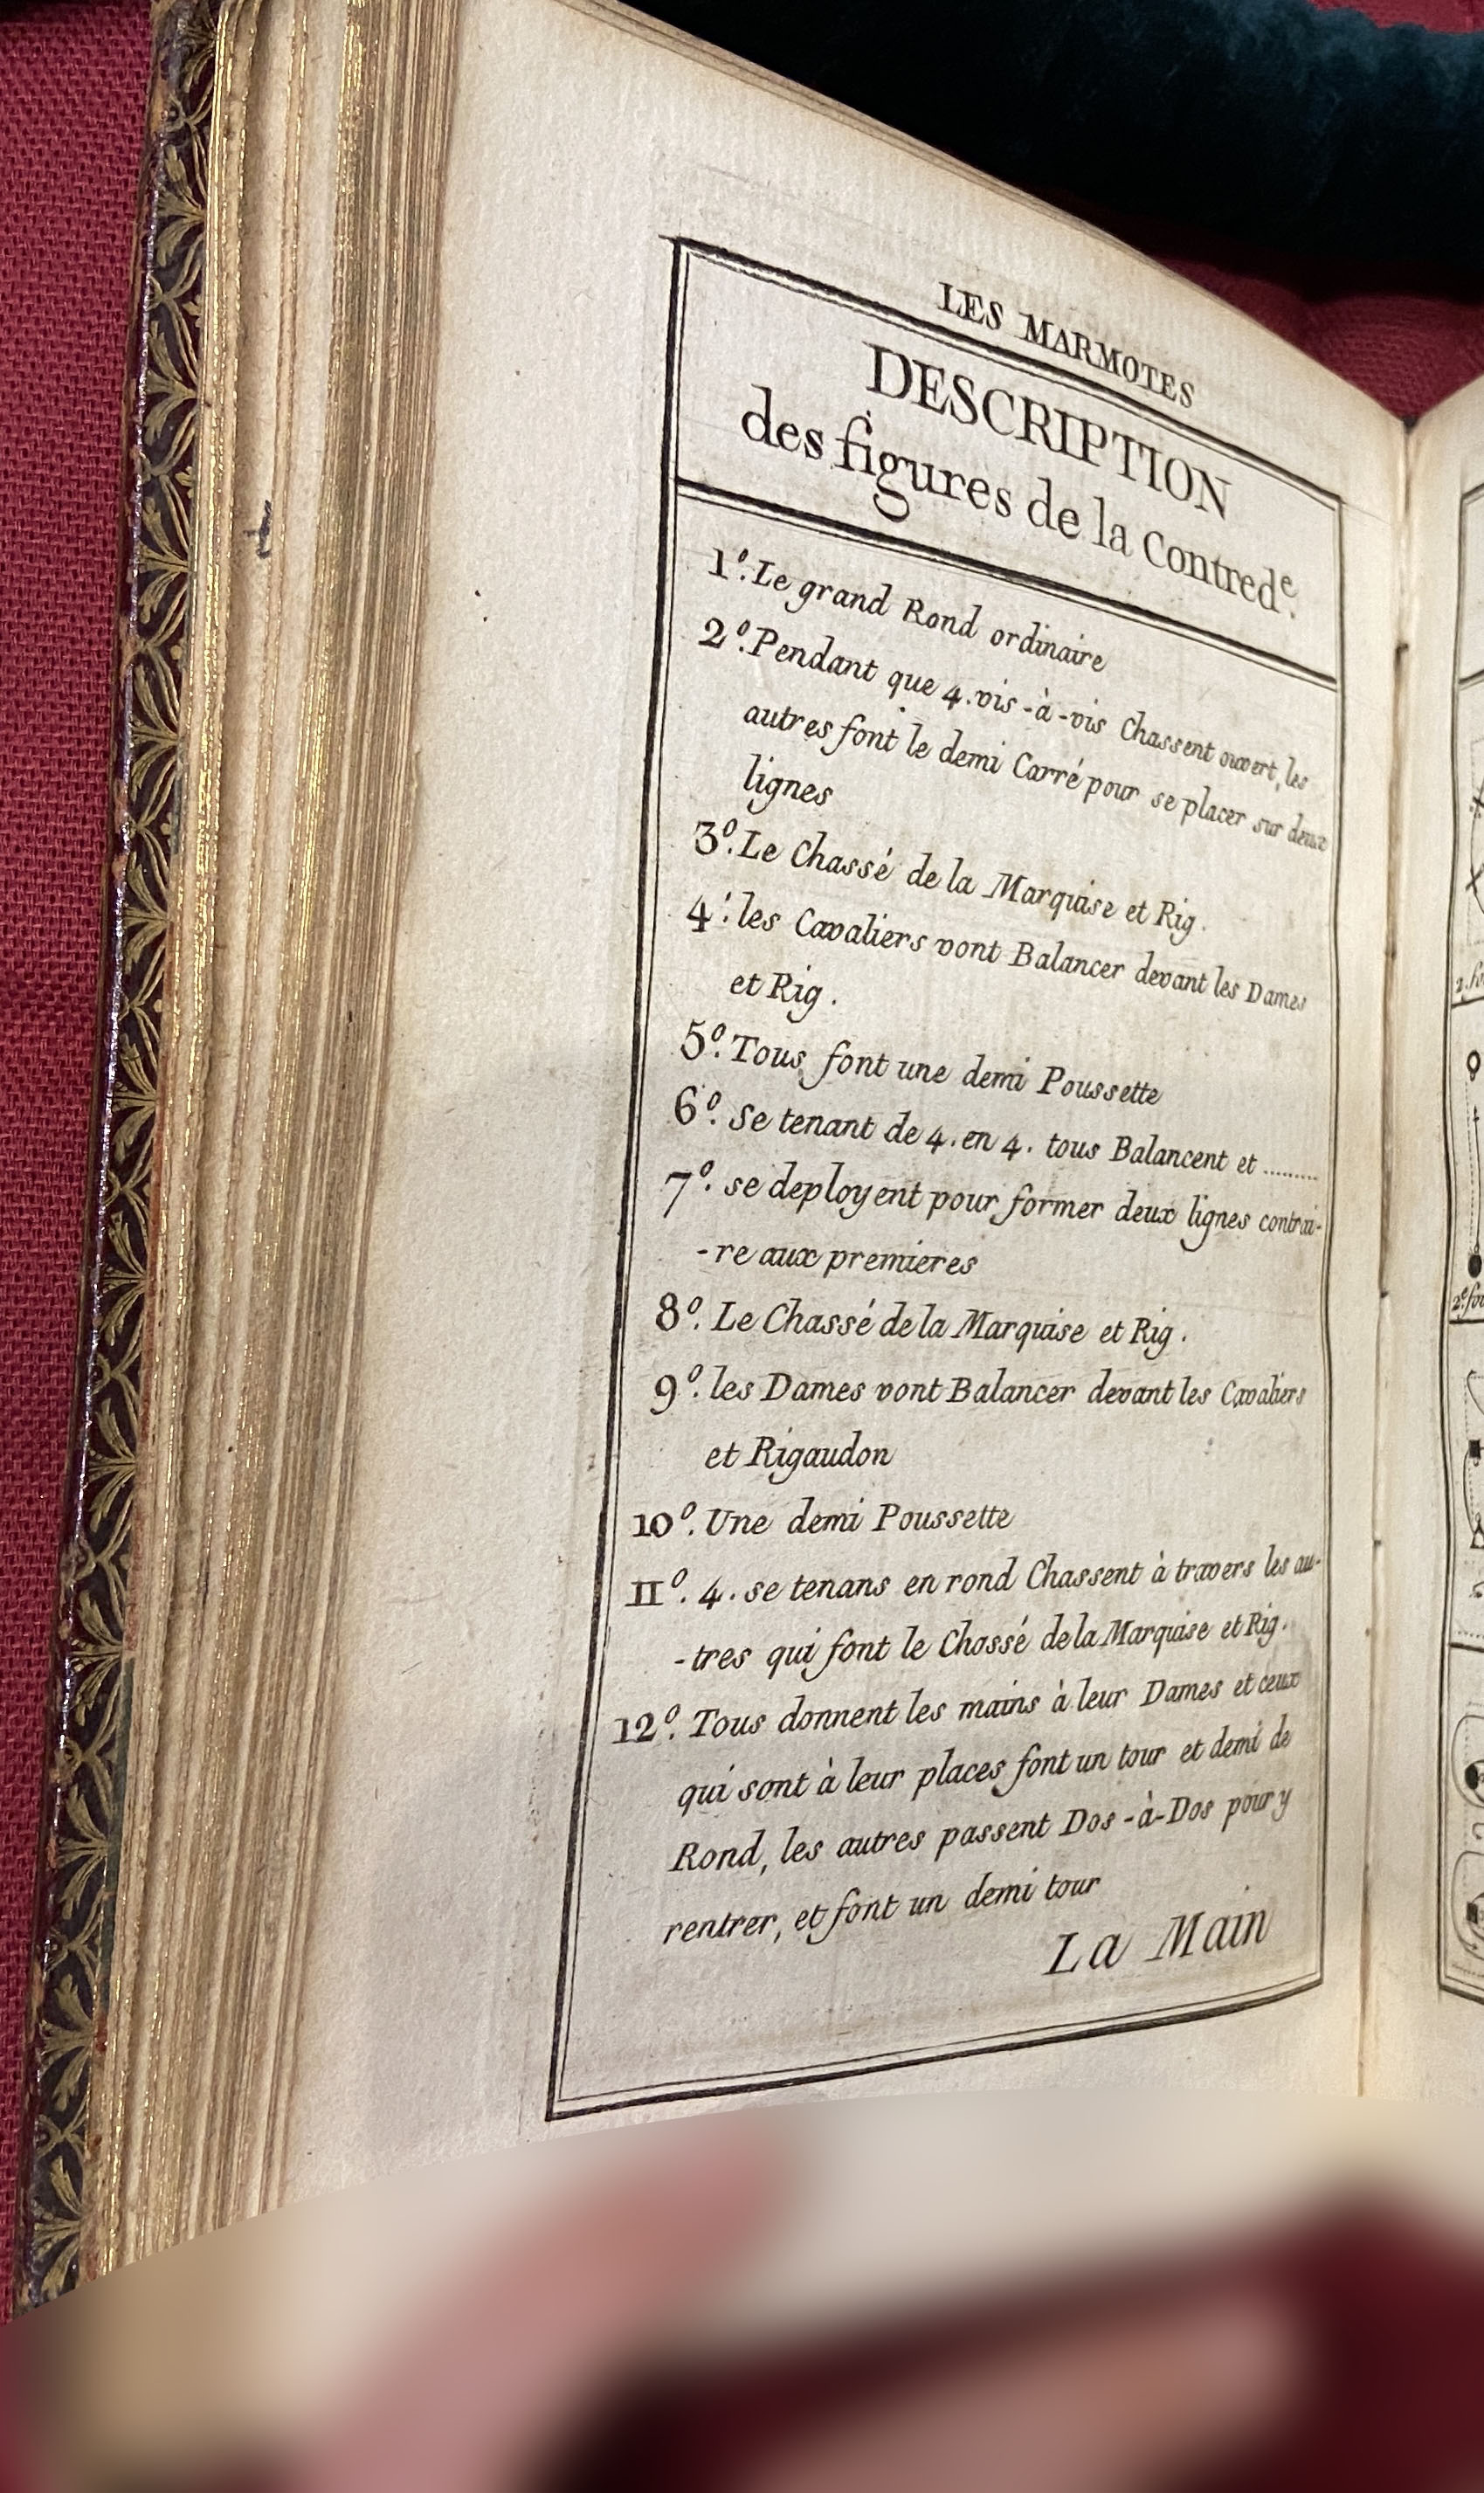 LES MARMOTES
DESCRIPTION
des figures de la Contred.e
1.º Le grand Rond ordinaire
2.º Pendant que 4. vis-à-vis Chassent ouvert, les
autres font le demi Carré pour se placer sur deux
lignes
3.º Le Chassé de la Marquise et Rig.
4.' les Cavaliers vont Balancer devant les Dames
et Rig.
5.º Tous font une demi Poussette
6.º Se tenant de 4. en 4. tous Balancent et .........
7.º se deployent pour former deux lignes contrai-
-re aux premieres
8.º Le Chassé de la Marquise et Rig.
9.º les Dames vont Balancer devant les Cavaliers
et Rigaudon
10.º Une demi Poussette
II.º 4. se tenans en rond Chassent à travers les au-
-tres qui font le Chassé de la Marquise et Rig.
12.º Tous donnent les mains à leur Dames et ceux
qui sont à leur places font un tour et demi de
Rond, les autres passent Dos-à-Dos pour y
rentrer, et font un demi tour
La Main